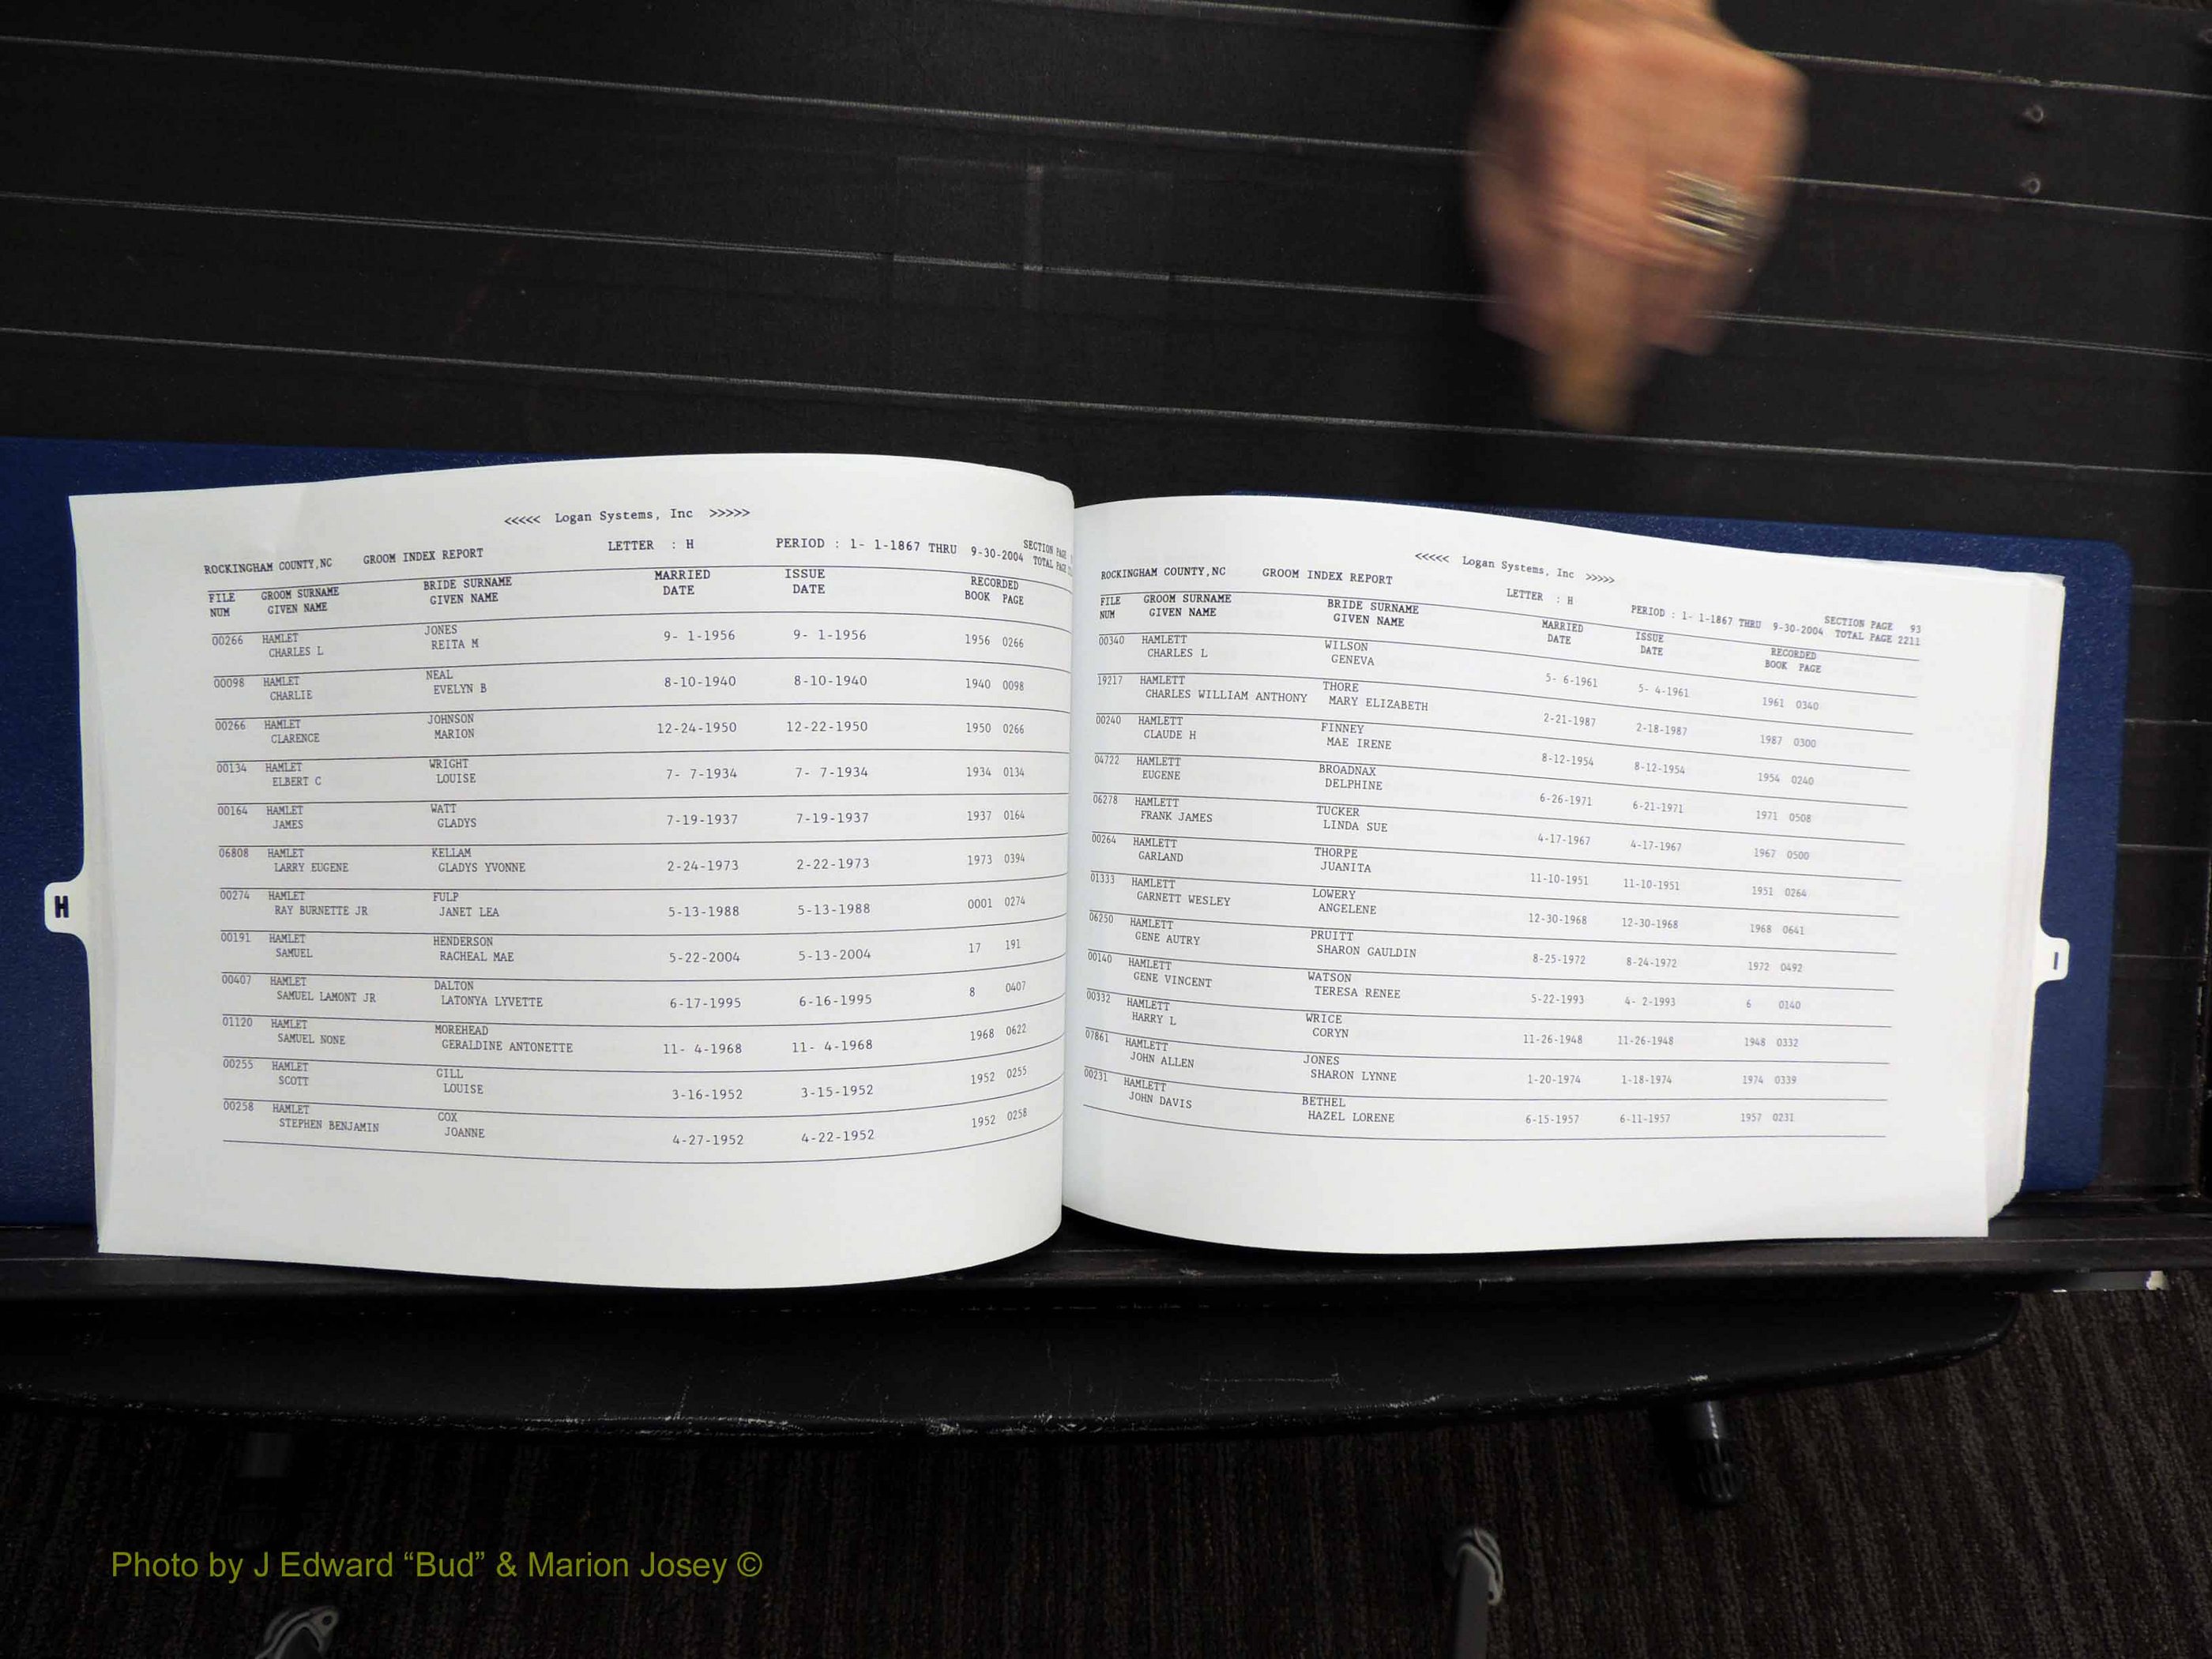 <<<<< Logan Systems, Inc >>>>>
ROCKINGHAM COUNTY,NC GROOM INDEX REPORT LETTER : H PERIOD : 1- 1-1867 THRU 9-30-2004 SECTION PAGE
TOTAL PAGE
FILE GROOM SURNAME BRIDE SURNAME MARRIED ISSUE RECORDED
NUM GIVEN NAME GIVEN NAME DATE DATE BOOK PAGE
00266 HAMLET JONES 9- 1-1956 9- 1-1956 1956 0266
CHARLES L REITA M
00098 HAMLET NEAL 8-10-1940 8-10-1940 1940 0098
CHARLIE EVELYN B
00266 HAMLET JOHNSON 12-24-1950 12-22-1950 1950 0266
CLARENCE MARION
00134 HAMLET WRIGHT 7- 7-1934 7- 7-1934 1934 0134
ELBERT C LOUISE
00164 HAMLET WATT 7-19-1937 7-19-1937 1937 0164
JAMES GLADYS
06808 HAMLET KELLAM 2-24-1973 2-22-1973 1973 0394
LARRY EUGENE GLADYS YVONNE
00274 HAMLET FULP 5-13-1988 5-13-1988 0001 0274
RAY BURNETTE JR JANET LEA
00191 HAMLET HENDERSON 5-22-2004 5-13-2004 17 191
SAMUEL RACHEAL MAE
00407 HAMLET DALTON 6-17-1995 6-16-1995 8 0407
SAMUEL LAMONT JR LATONYA LYVETTE
01120 HAMLET MOREHEAD 11- 4-1968 11- 4-1968 1968 0622
SAMUEL NONE GERALDINE ANTONETTE
00255 HAMLET GILL 3-16-1952 3-15-1952 1952 0255
SCOTT LOUISE
00258 HAMLET COX 4-27-1952 4-22-1952 1952 0258
STEPHEN BENJAMIN JOANNE
H
<<<<< Logan Systems, Inc >>>>>
ROCKINGHAM COUNTY,NC GROOM INDEX REPORT LETTER : H PERIOD : 1- 1-1867 THRU 9-30-2004 SECTION PAGE 93
TOTAL PAGE 2211
FILE GROOM SURNAME BRIDE SURNAME MARRIED ISSUE RECORDED
NUM GIVEN NAME GIVEN NAME DATE DATE BOOK PAGE
00340 HAMLETT WILSON 5- 6-1961 5- 4-1961 1961 0340
CHARLES L GENEVA
19217 HAMLETT THORE 2-21-1987 2-18-1987 1987 0300
CHARLES WILLIAM ANTHONY MARY ELIZABETH
00240 HAMLETT FINNEY 8-12-1954 8-12-1954 1954 0240
CLAUDE H MAE IRENE
04722 HAMLETT BROADNAX 6-26-1971 6-21-1971 1971 0508
EUGENE DELPHINE
06278 HAMLETT TUCKER 4-17-1967 4-17-1967 1967 0500
FRANK JAMES LINDA SUE
00264 HAMLETT THORPE 11-10-1951 11-10-1951 1951 0264
GARLAND JUANITA
01333 HAMLETT LOWERY 12-30-1968 12-30-1968 1968 0641
GARNETT WESLEY ANGELENE
06250 HAMLETT PRUITT 8-25-1972 8-24-1972 1972 0492
GENE AUTRY SHARON GAULDIN
00140 HAMLETT WATSON 5-22-1993 4- 2-1993 6 0140
GENE VINCENT TERESA RENEE
00332 HAMLETT WRICE 11-26-1948 11-26-1948 1948 0332
HARRY L CORYN
07861 HAMLETT JONES 1-20-1974 1-18-1974 1974 0339
JOHN ALLEN SHARON LYNNE
00231 HAMLETT BETHEL 6-15-1957 6-11-1957 1957 0231
JOHN DAVIS HAZEL LORENE
I
Photo by J Edward “Bud” & Marion Josey ©